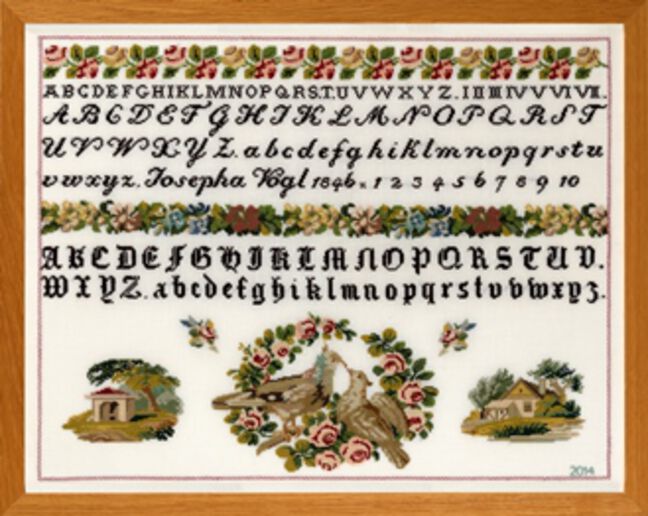 ABCDEFGHIKLMNOPQRSTUVWXYZ. I II III IV V VI VII.
ABCDEFGHIKLMNOPQRST
UVWXYZ. abcdefghiklmnopqrstu
vwxyz. Josepha Vogl 1846. 1 2 3 4 5 6 7 8 9 10
ABCDEFGHIKLMNOPQRSTUV.
WXYZ. abcdefghiklmnopqrstuvwxyz.
2014